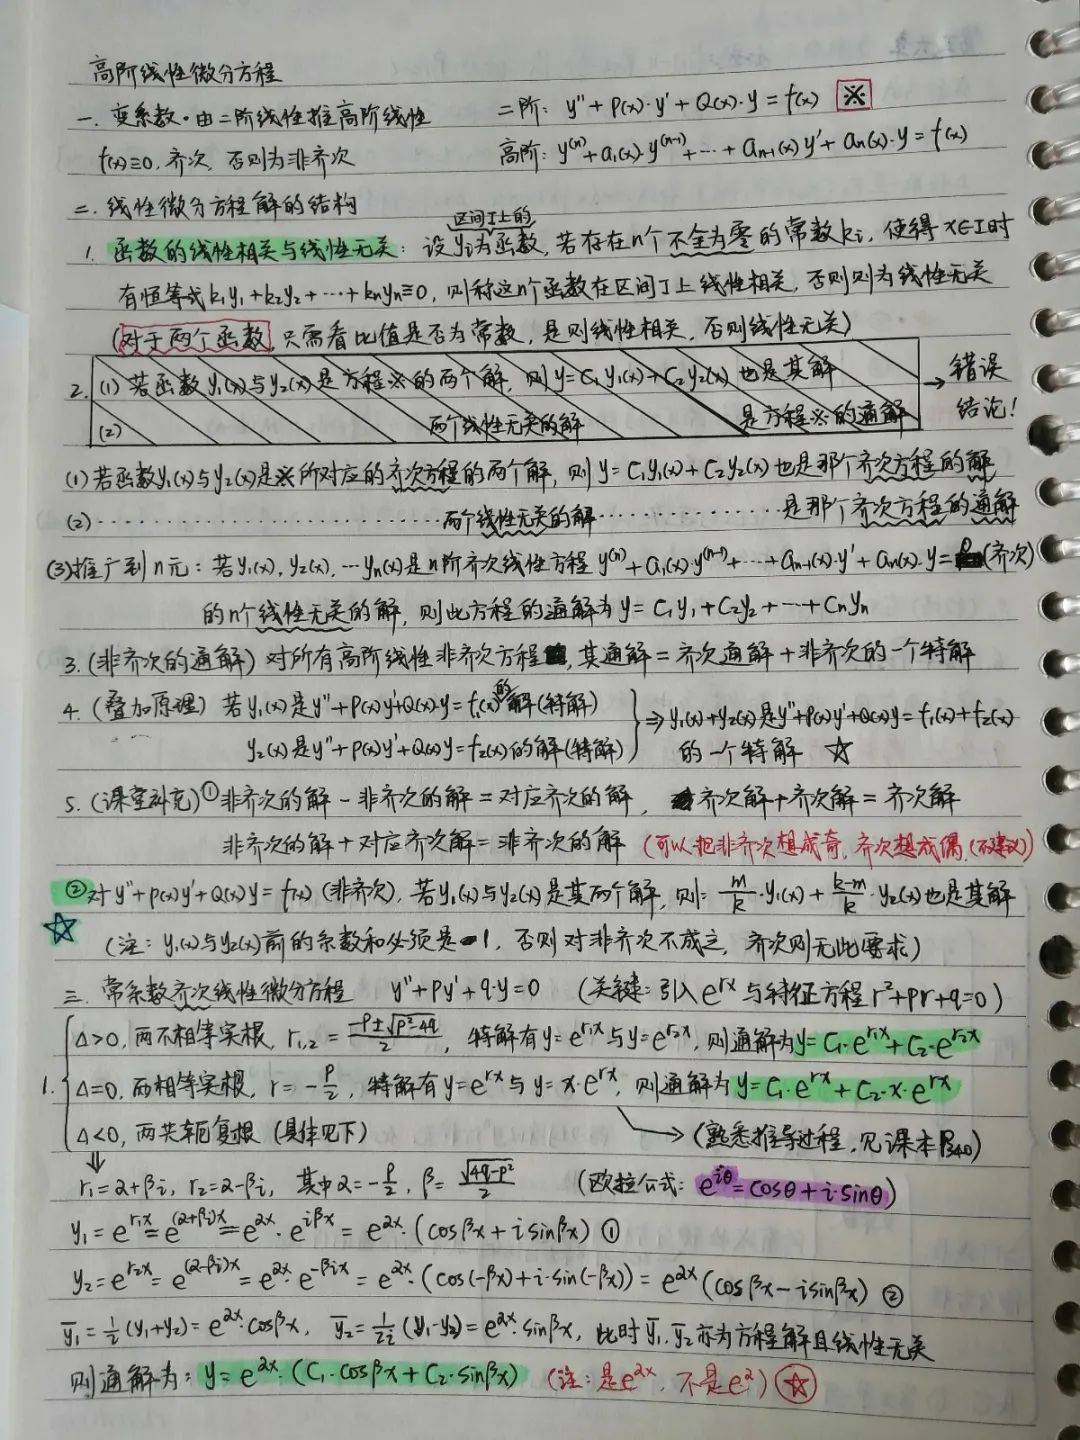 高阶线性微分方程
一. 变系数·由二阶线性推高阶线性 二阶: y''+P(x)·y'+Q(x)·y=f(x) ※
f(x)≡0, 齐次, 否则为非齐次 高阶: y⁽ⁿ⁾+a₁(x)·y⁽ⁿ⁻¹⁾+…+aₙ₋₁(x)y'+aₙ(x)·y=f(x)
二. 线性微分方程解的结构
区间I上的
1. 函数的线性相关与线性无关: 设yᵢ为函数, 若存在n个不全为零的常数kᵢ, 使得x∈I时
有恒等式k₁y₁+k₂y₂+…+kₙyₙ≡0, 则称这n个函数在区间I上线性相关, 否则则为线性无关
(对于两个函数, 只需看比值是否为常数, 是则线性相关, 否则线性无关)
2. (1) 若函数y₁(x)与y₂(x)是方程※的两个解, 则y=C₁y₁(x)+C₂y₂(x)也是其解 → 错误
(2) 两个线性无关的解 是方程※的通解 结论!
(1) 若函数y₁(x)与y₂(x)是※所对应的齐次方程的两个解, 则y=C₁y₁(x)+C₂y₂(x)也是那个齐次方程的解
(2)…………………………两个线性无关的解……………是那个齐次方程的通解
(3)推广到n元: 若y₁(x), y₂(x), …yₙ(x)是n阶齐次线性方程y⁽ⁿ⁾+a₁(x)·y⁽ⁿ⁻¹⁾+…+aₙ₋₁(x)·y'+aₙ(x)·y=0(齐次)
的n个线性无关的解, 则此方程的通解为y=C₁y₁+C₂y₂+…+Cₙyₙ
3. (非齐次的通解) 对所有高阶线性非齐次方程, 其通解=齐次通解+非齐次的一个特解
4. (叠加原理) 若y₁(x)是y''+P(x)y'+Q(x)·y=f₁(x)的解(特解) ⇒y₁(x)+y₂(x)是y''+P(x)y'+Q(x)y=f₁(x)+f₂(x)
y₂(x)是y''+P(x)y'+Q(x)y=f₂(x)的解(特解) 的一个特解 ☆
5. (课堂补充)①非齐次的解-非齐次的解=对应齐次的解, 齐次解+齐次解=齐次解
非齐次的解+对应齐次解=非齐次的解 (可以把非齐次想成奇, 齐次想成偶, (不建议)
②对y''+P(x)y'+Q(x)y=f(x) (非齐次), 若y₁(x)与y₂(x)是其两个解, 则: m/k·y₁(x)+(k-m)/k·y₂(x)也是其解
☆ (注: y₁(x)与y₂(x)前的系数和必须是1, 否则对非齐次不成立, 齐次则无此要求)
三. 常系数齐次线性微分方程 y''+py'+q·y=0 (关键: 引入eʳˣ与特征方程r²+pr+q=0)
Δ>0, 两不相等实根, r₁,₂=(-p±√(p²-4q))/2, 特解有y=e^(r₁x)与y=e^(r₂x), 则通解为y=C₁·e^(r₁x)+C₂·e^(r₂x)
1. Δ=0, 两相等实根, r=-p/2, 特解有y=e^(rx)与y=x·e^(rx), 则通解为y=C₁·e^(rx)+C₂·x·e^(rx)
Δ<0, 两共轭复根 (具体见下) → (熟悉推导过程, 见课本P340)
⇓ r₁=α+βi, r₂=α-βi, 其中α=-p/2, β=√(4q-p²)/2 (欧拉公式: e^(iθ)=cosθ+i·sinθ)
y₁=e^(r₁x)=e^((α+βi)x)=e^(αx)·e^(iβx)=e^(αx)·(cosβx+isinβx) ①
y₂=e^(r₂x)=e^((α-βi)x)=e^(αx)·e^(-βix)=e^(αx)·(cos(-βx)+i·sin(-βx))=e^(αx)(cosβx-isinβx) ②
ȳ₁=1/2(y₁+y₂)=e^(αx)·cosβx, ȳ₂=1/2i(y₁-y₂)=e^(αx)·sinβx, 此时ȳ₁, ȳ₂亦为方程解且线性无关
则通解为: y=e^(αx)·(C₁·cosβx+C₂·sinβx) (注: 是e^(αx), 不是e^α) ☆